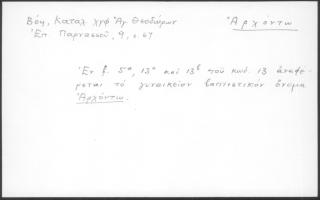 Βέη, Καταλ. χγφ Ἁγ. Θεοδώρων
Ἀρχόντω
Ἐπ. Παρνασσοῦ, 9, σ. 67
Ἐν φ. 5α, 13α καὶ 13β τοῦ κωδ. 13 ἀναφέ-
ρεται τὸ γυναικεῖον βαπτιστικὸν ὄνομα
Ἀρχόντω.